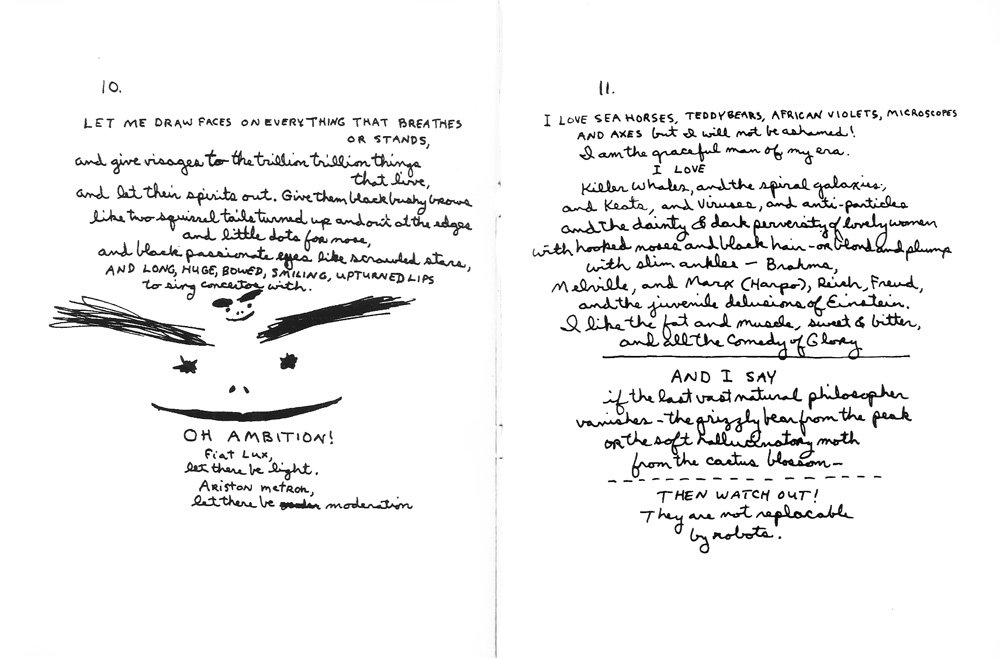 10.
LET ME DRAW FACES ON EVERYTHING THAT BREATHES
OR STANDS,
and give visages to the trillion trillion things
that live,
and let their spirits out. Give them black bushy brows
like two squirrel tails turned up and out at the edges
and little dots for nose,
and black passionate eyes like scrawled stars,
AND LONG, HUGE, BOWED, SMILING, UPTURNED LIPS
to sing concertos with.
OH AMBITION!
Fiat Lux,
let there be light.
ARISTON METRON,
let there be moderation
11.
I LOVE SEA HORSES, TEDDYBEARS, AFRICAN VIOLETS, MICROSCOPES
AND AXES but I will not be ashamed!
I am the graceful man of my era.
I LOVE
Killer Whales, and the spiral galaxies,
and Keats, and Viruses, and anti-particles
and the dainty & dark perversity of lovely women
with hooked noses and black hair - or blond and plump
with slim ankles — Brahms,
Melville, and Marx (Harpo), Reich, Freud,
and the juvenile delusions of Einstein.
I like the fat and muscle, sweet & bitter,
and all the Comedy of Glory
AND I SAY
if the last vast natural philosopher
vanishes - the grizzly bear from the peak
OR the soft hallucinatory moth
from the cactus blossom —
THEN WATCH OUT!
They are not replacable
by robots.